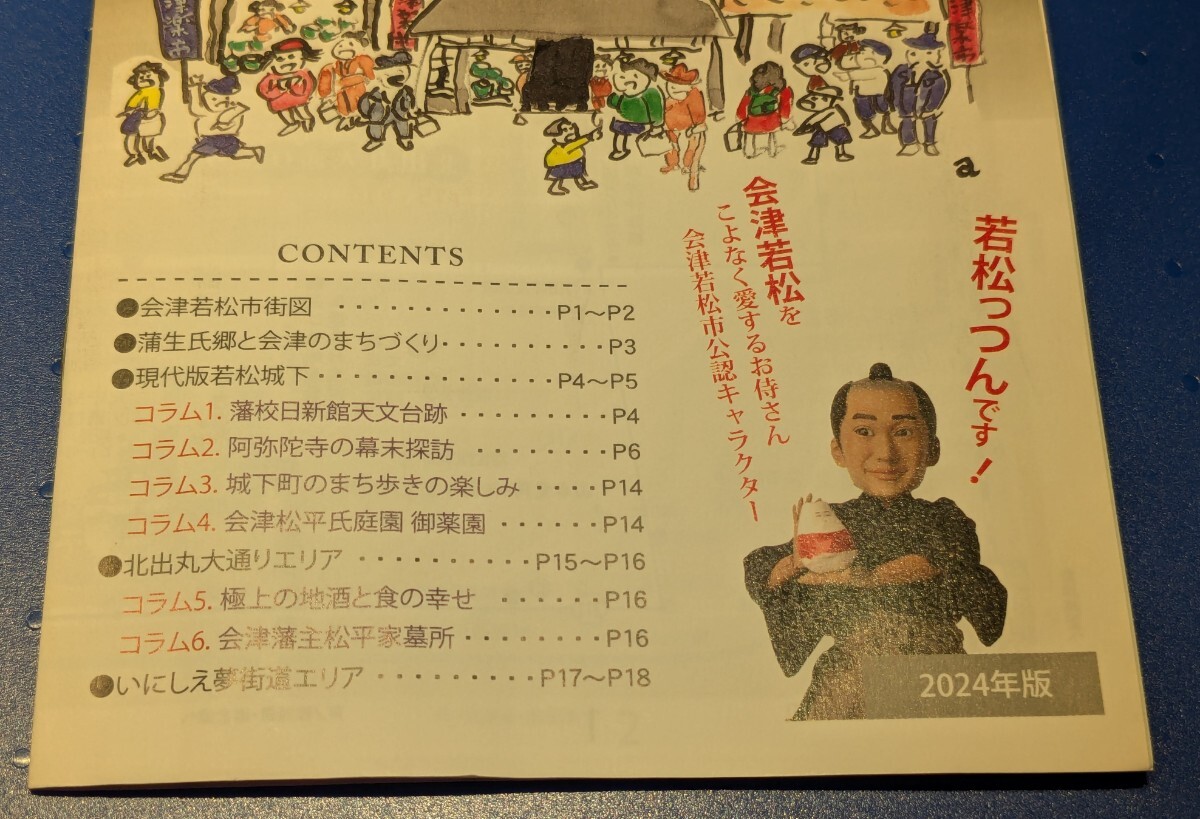 津楽市
津楽市
a
CONTENTS
●会津若松市街図 ・・・・・・・・・・・・・P1～P2
●蒲生氏郷と会津のまちづくり・・・・・・・・・・P3
●現代版若松城下・・・・・・・・・・・・・・P4～P5
コラム1. 藩校日新館天文台跡 ・・・・・・・・・P4
コラム2. 阿弥陀寺の幕末探訪 ・・・・・・・・P6
コラム3. 城下町のまち歩きの楽しみ ・・・・P14
コラム4. 会津松平氏庭園 御薬園 ・・・・・・P14
●北出丸大通りエリア ・・・・・・・・・・P15～P16
コラム5. 極上の地酒と食の幸せ ・・・・・・P16
コラム6. 会津藩主松平家墓所・・・・・・・・P16
●いにしえ夢街道エリア ・・・・・・・・・P17～P18
若松っつんです！
会津若松を
こよなく愛するお侍さん
会津若松市公認キャラクター
2024年版